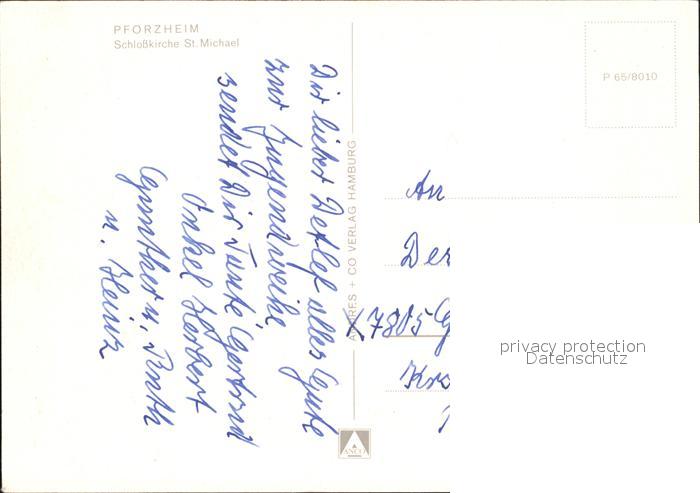 PFORZHEIM
Schloßkirche St. Michael
Dir lieber Detlef alles Gute
zur Jugendweihe
sendet Dir Tante Gertrud
Onkel Herbert
Günther u. Ruth
u. Heinz
ANDRES + CO VERLAG HAMBURG
ANCO
P 65/8010
An
X7805 G
privacy protection
Datenschutz